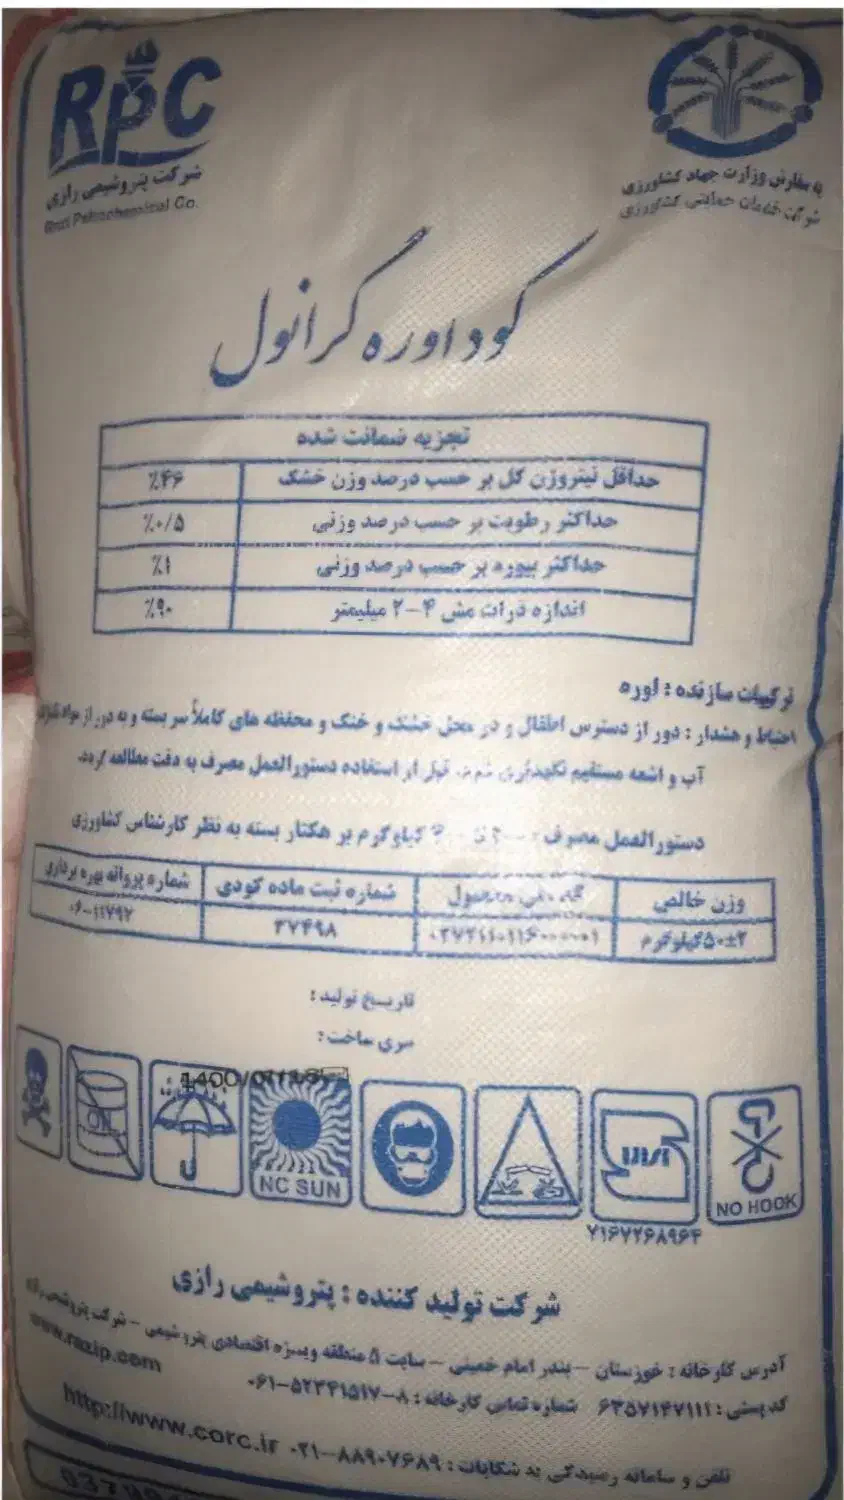 RPC
شرکت پتروشیمی رازی
Razi Petrochemical Co.
به سفارش وزارت جهاد کشاورزی
شرکت خدمات حمایتی کشاورزی
کود اوره گرانول
تجزیه ضمانت شده
حداقل نیتروژن کل بر حسب درصد وزن خشک ٪۴۶
حداکثر رطوبت بر حسب درصد وزنی ٪۰/۵
حداکثر بیوره بر حسب درصد وزنی ٪۱
اندازه ذرات مش ۴-۲ میلیمتر ٪۹۰
ترکیبات سازنده : اوره
احتیاط و هشدار : دور از دسترس اطفال و در محل خشک و خنک و محفظه های کاملاً سر بسته و به دور از مواد
آب و اشعه مستقیم نگهداری شود. قبل از استفاده دستورالعمل مصرف به دقت مطالعه گردد.
دستورالعمل مصرف : کیلوگرم بر هکتار بسته به نظر کارشناس کشاورزی
وزن خالص محصول شماره ثبت ماده کودی شماره پروانه بهره برداری
۵۰±۲کیلوگرم ۲۷۴۹۸ ۰۶-۱۱۷۹۲
تاریخ تولید :
سری ساخت :
1400/07/
OIL
NC SUN
NO HOOK
۷۱۶۷۲۶۸۹۶۴
شرکت تولید کننده : پتروشیمی رازی
آدرس کارخانه : خوزستان - بندر امام خمینی - سایت ۵ منطقه ویژه اقتصادی پتروشیمی - شرکت پتروشیمی رازی
کد پستی : ۶۳۵۷۱۴۷۱۱۱ شماره تماس کارخانه : ۸-۵۲۳۴۱۵۱۷-۰۶۱
www.razip.com
تلفن و سامانه رسیدگی به شکایات : ۸۸۹۰۷۶۸۹-۰۲۱ http://www.corc.ir